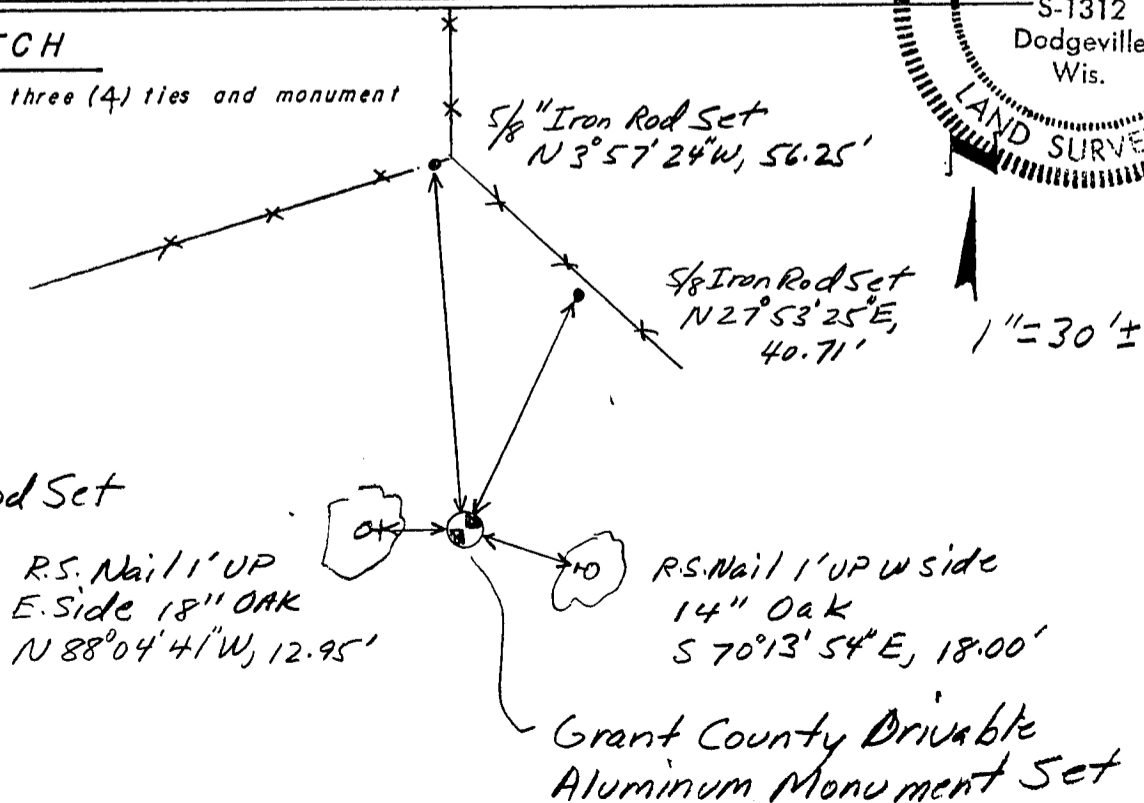 TCH
three (4) ties and monument
S-1312
Dodgeville
Wis.
LAND SURVE
5/8" Iron Rod Set
N 3°57'24"W, 56.25'
5/8 Iron Rod Set
N 27°53'25"E,
40.71'
1"=30'±
od Set
R.S. Nail 1' UP
E. Side 18" OAK
N 88°04'41"W, 12.95'
R.S. Nail 1' UP W side
14" Oak
S 70°13'54"E, 18.00'
Grant County Drivable
Aluminum Monument Set